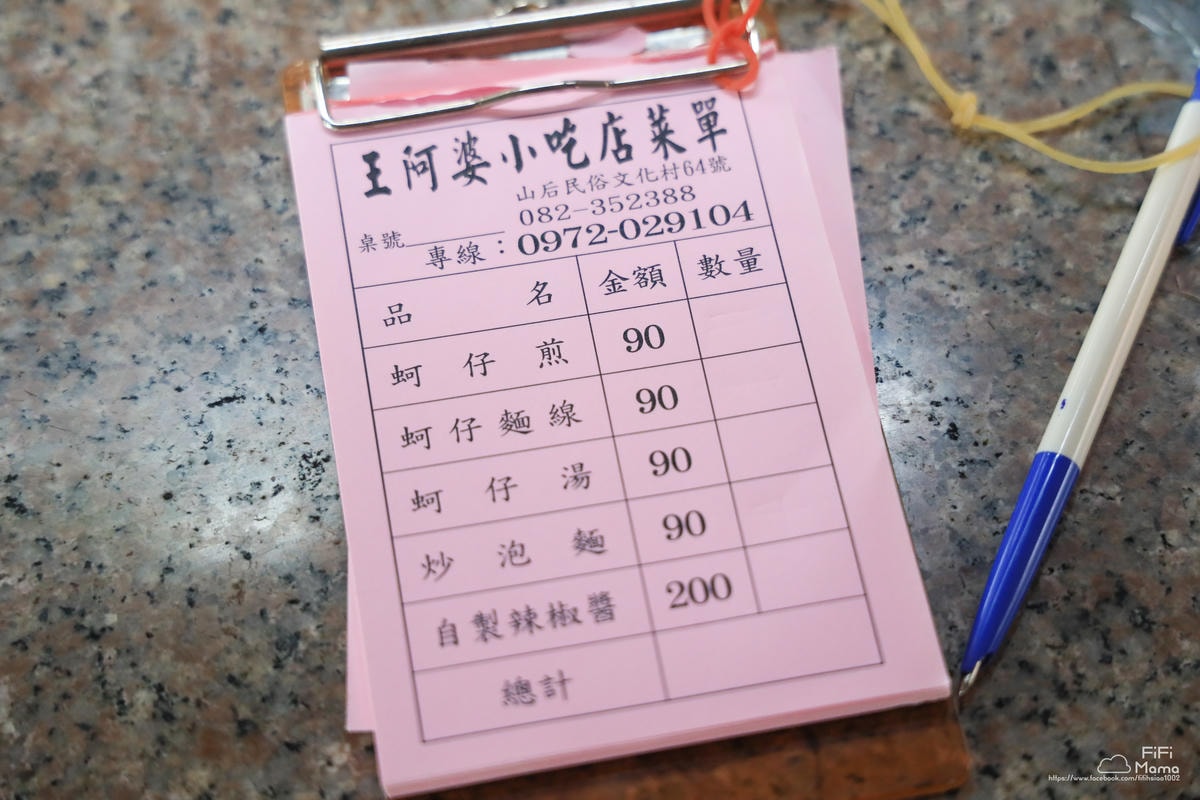 王阿婆小吃店菜單
山后民俗文化村64號
082-352388
桌號
專線：0972-029104
品名 金額 數量
蚵仔煎 90
蚵仔麵線 90
蚵仔湯 90
炒泡麵 90
自製辣椒醬 200
總計
FiFi
Mama
https://www.facebook.com/fifihsiao1002